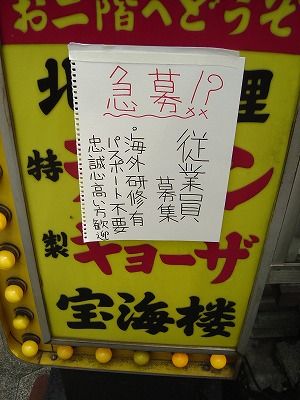 お二階へどうぞ
急募!?
従業員
募集
・海外研修有
パスポート不要
忠誠心高い方歓迎
北
理
特
製
ン
ギョーザ
宝海楼